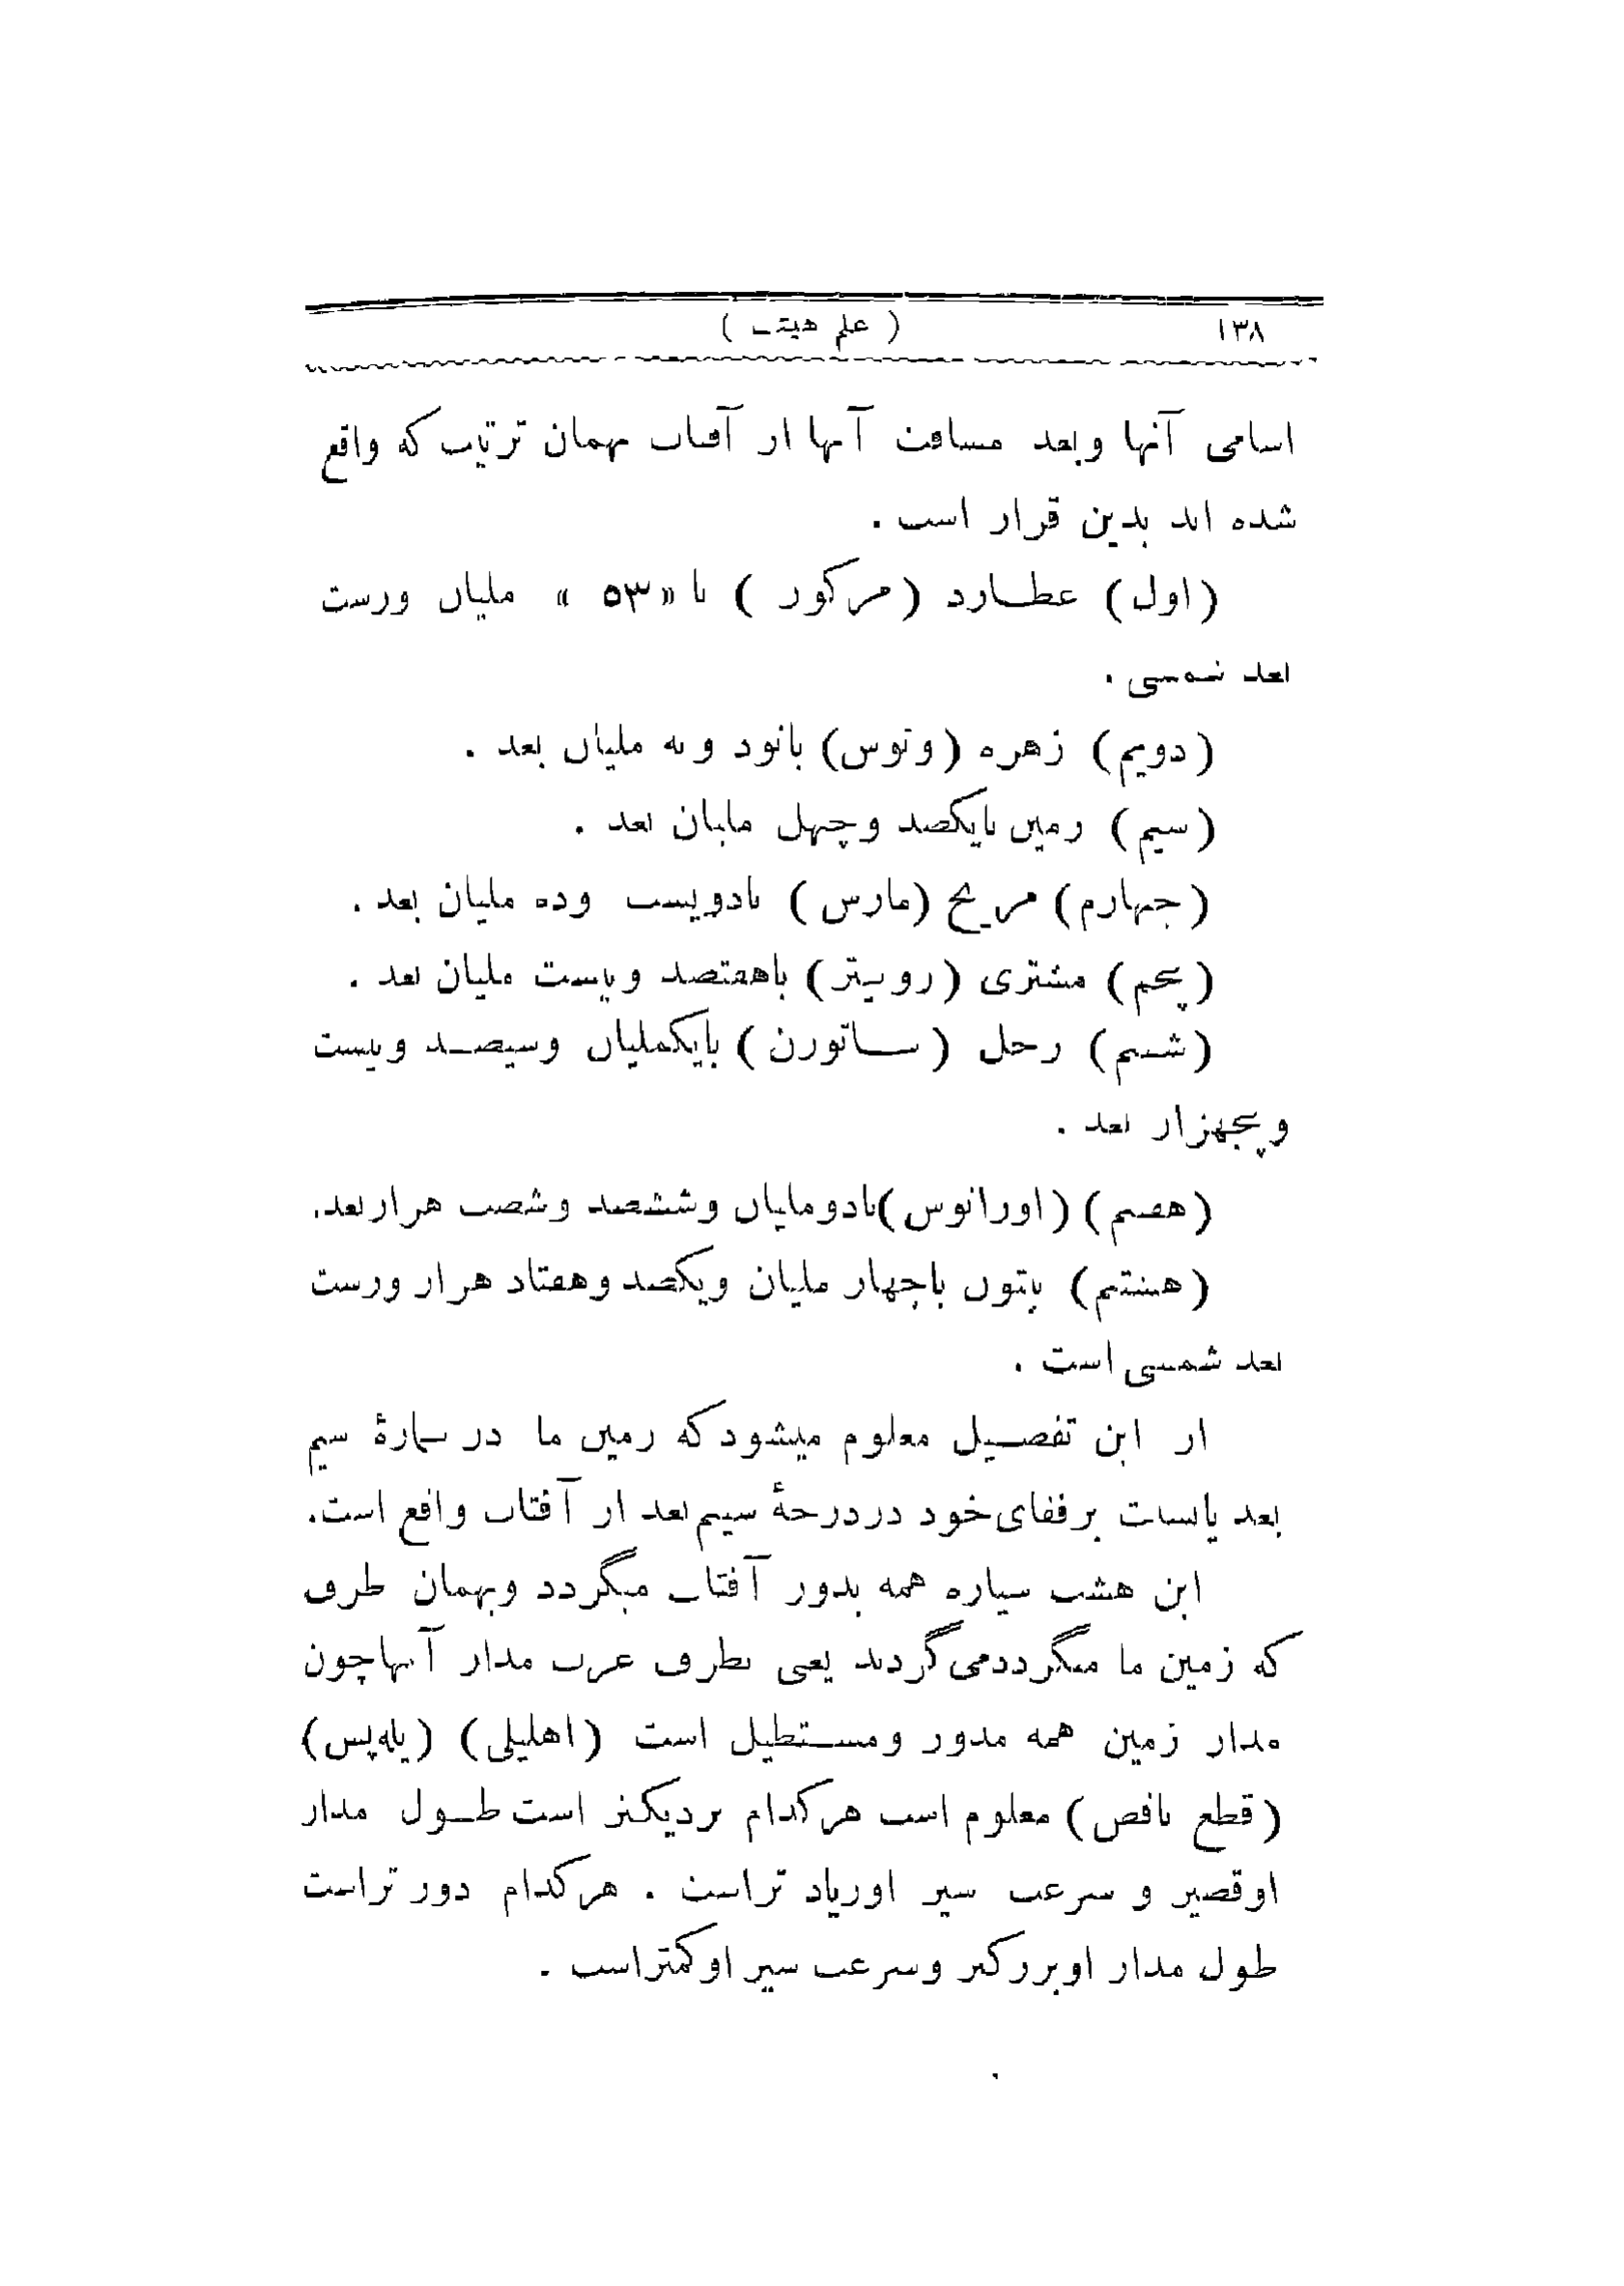 ۱۳۸ ( علم هیئت )
اسامی آنها وبعد مسافت آنها از آفتاب بهمان ترتیب که واقع
شده اند بدین قرار است .
(اول) عطارد (مرکور ) با «۵۳ » ملیان ورست
بعد شمسی .
(دویم) زهره (ونوس) بانود ونه ملیان بعد .
(سیم) زمین بایکصد وچهل ملیان بعد .
(چهارم) مریخ (مارس) بادویست وده ملیان بعد .
(پنجم) مشتری (روپیتر) باهفتصد وبیست ملیان بعد .
(ششم) زحل (ساتورن) بایکملیان وسیصد وبیست
وپنجهزار بعد .
(هفتم) (اورانوس) بادوملیان وششصد وشصت هزاربعد.
(هشتم) پتون باچهار ملیان ویکصد وهفتاد هزار ورست
بعد شمسی است .
از این تفصیل معلوم میشود که زمین ما در سیارهٔ سیم
بعد یا برفقای خود دردرجهٔ سیم بعد از آفتاب واقع است.
این هشت سیاره همه بدور آفتاب میگردد وبهمان طرف
که زمین ما میگردد می گردند یعنی بطرف غرب مدار آنها چون
مدار زمین همه مدور ومستطیل است (اهلیلی) (یله‌پس)
(قطع ناقص) معلوم است هرکدام نزدیکتر است طول مدار
اوقصیر و سرعت سیر اوزیاد تراست . هرکدام دور تراست
طول مدار اوبزرکتر وسرعت سیر اوکمتراست .